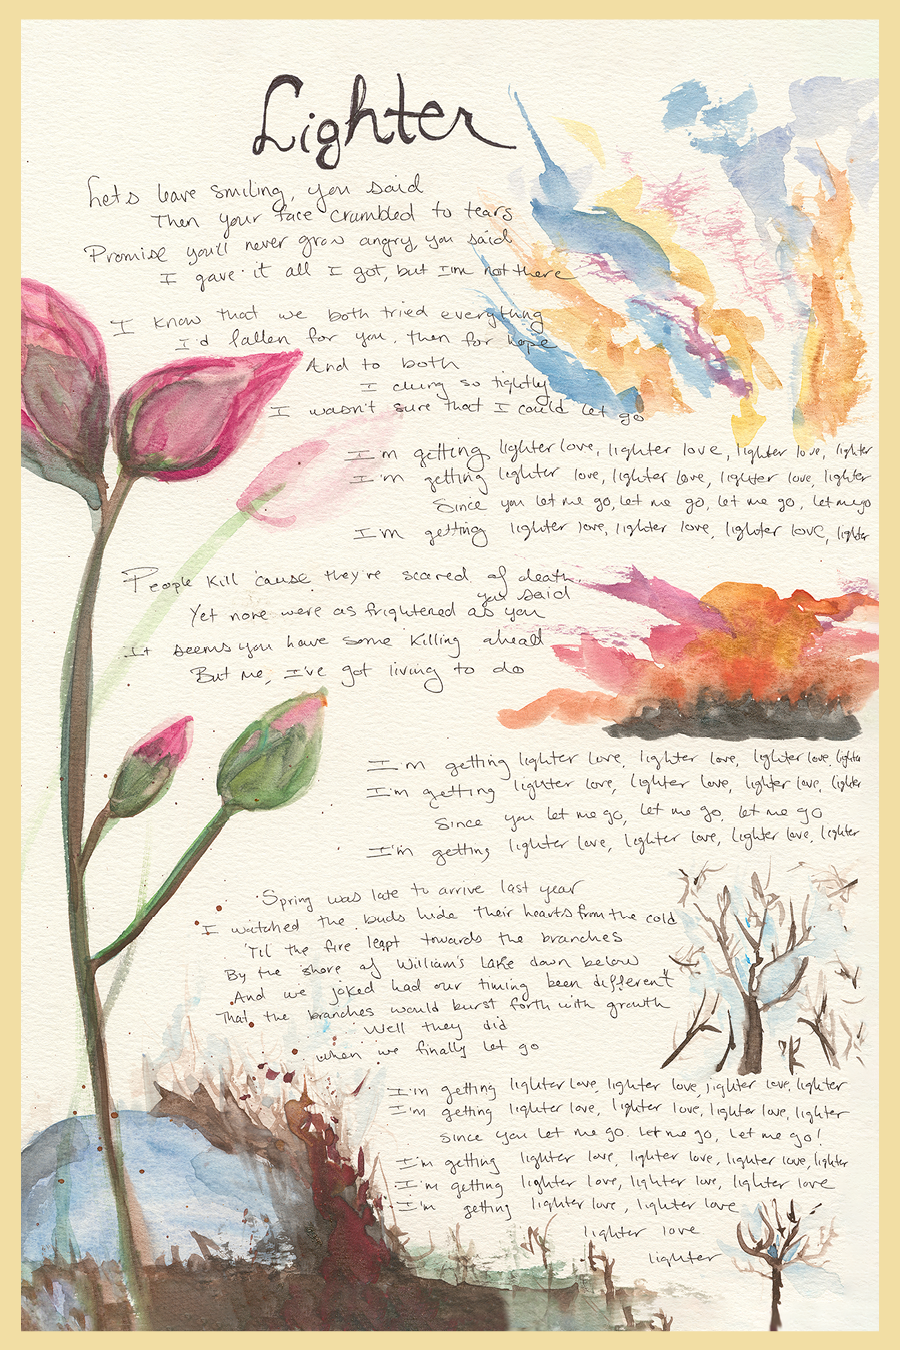 Lighter
Let's leave smiling, you said
Then your face crumbled to tears
Promise you'll never grow angry, you said
I gave it all I got, but I'm not there
I know that we both tried everything
I'd fallen for you, then for hope
And to both
I clung so tightly
I wasn't sure that I could let go
I'm getting lighter love, lighter love, lighter love, lighter
I'm getting lighter love, lighter love, lighter love, lighter
Since you let me go, let me go, let me go, let me go
I'm getting lighter love, lighter love, lighter love, lighter
People kill 'cause they're scared of death,
you said
Yet none were as frightened as you
It seems you have some killing ahead
But me, I've got living to do
I'm getting lighter love, lighter love, lighter love, lighter
I'm getting lighter love, lighter love, lighter love, lighter
Since you let me go, let me go, let me go
I'm getting lighter love, lighter love, lighter love, lighter
Spring was late to arrive last year
I watched the buds hide their hearts from the cold
'Til the fire leapt towards the branches
By the shore of William's Lake down below
And we joked had our timing been different
That the branches would burst forth with growth
Well they did
when we finally let go
I'm getting lighter love, lighter love, lighter love, lighter
I'm getting lighter love, lighter love, lighter love, lighter
Since you let me go. let me go, let me go!
I'm getting lighter love, lighter love, lighter love, lighter
I'm getting lighter love, lighter love, lighter love
I'm getting lighter love, lighter love
lighter love
lighter